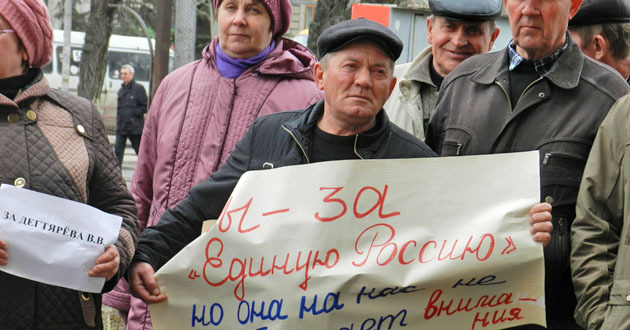 ЗА ДЕГТЯРЁВА В.В.
Ы - ЗА
"Единую Россию"
но она на нас не
внима-
ния